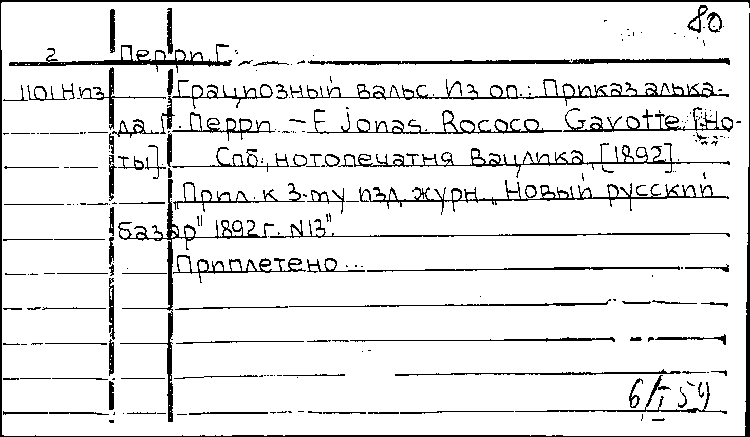 80
2 Перри, Г.
1101 Низ Грациозный вальс. Из оп.: Приказ алька-
да Г. Перри - E Jonas. Rococo Gavotte. [Но-
ты]. Спб., нотопечатня Вацлика, [1892].
„Прил. к 3-му изд. журн. „Новый русский
базар" 1892 г. N13".
Приплетено...
6/I 59